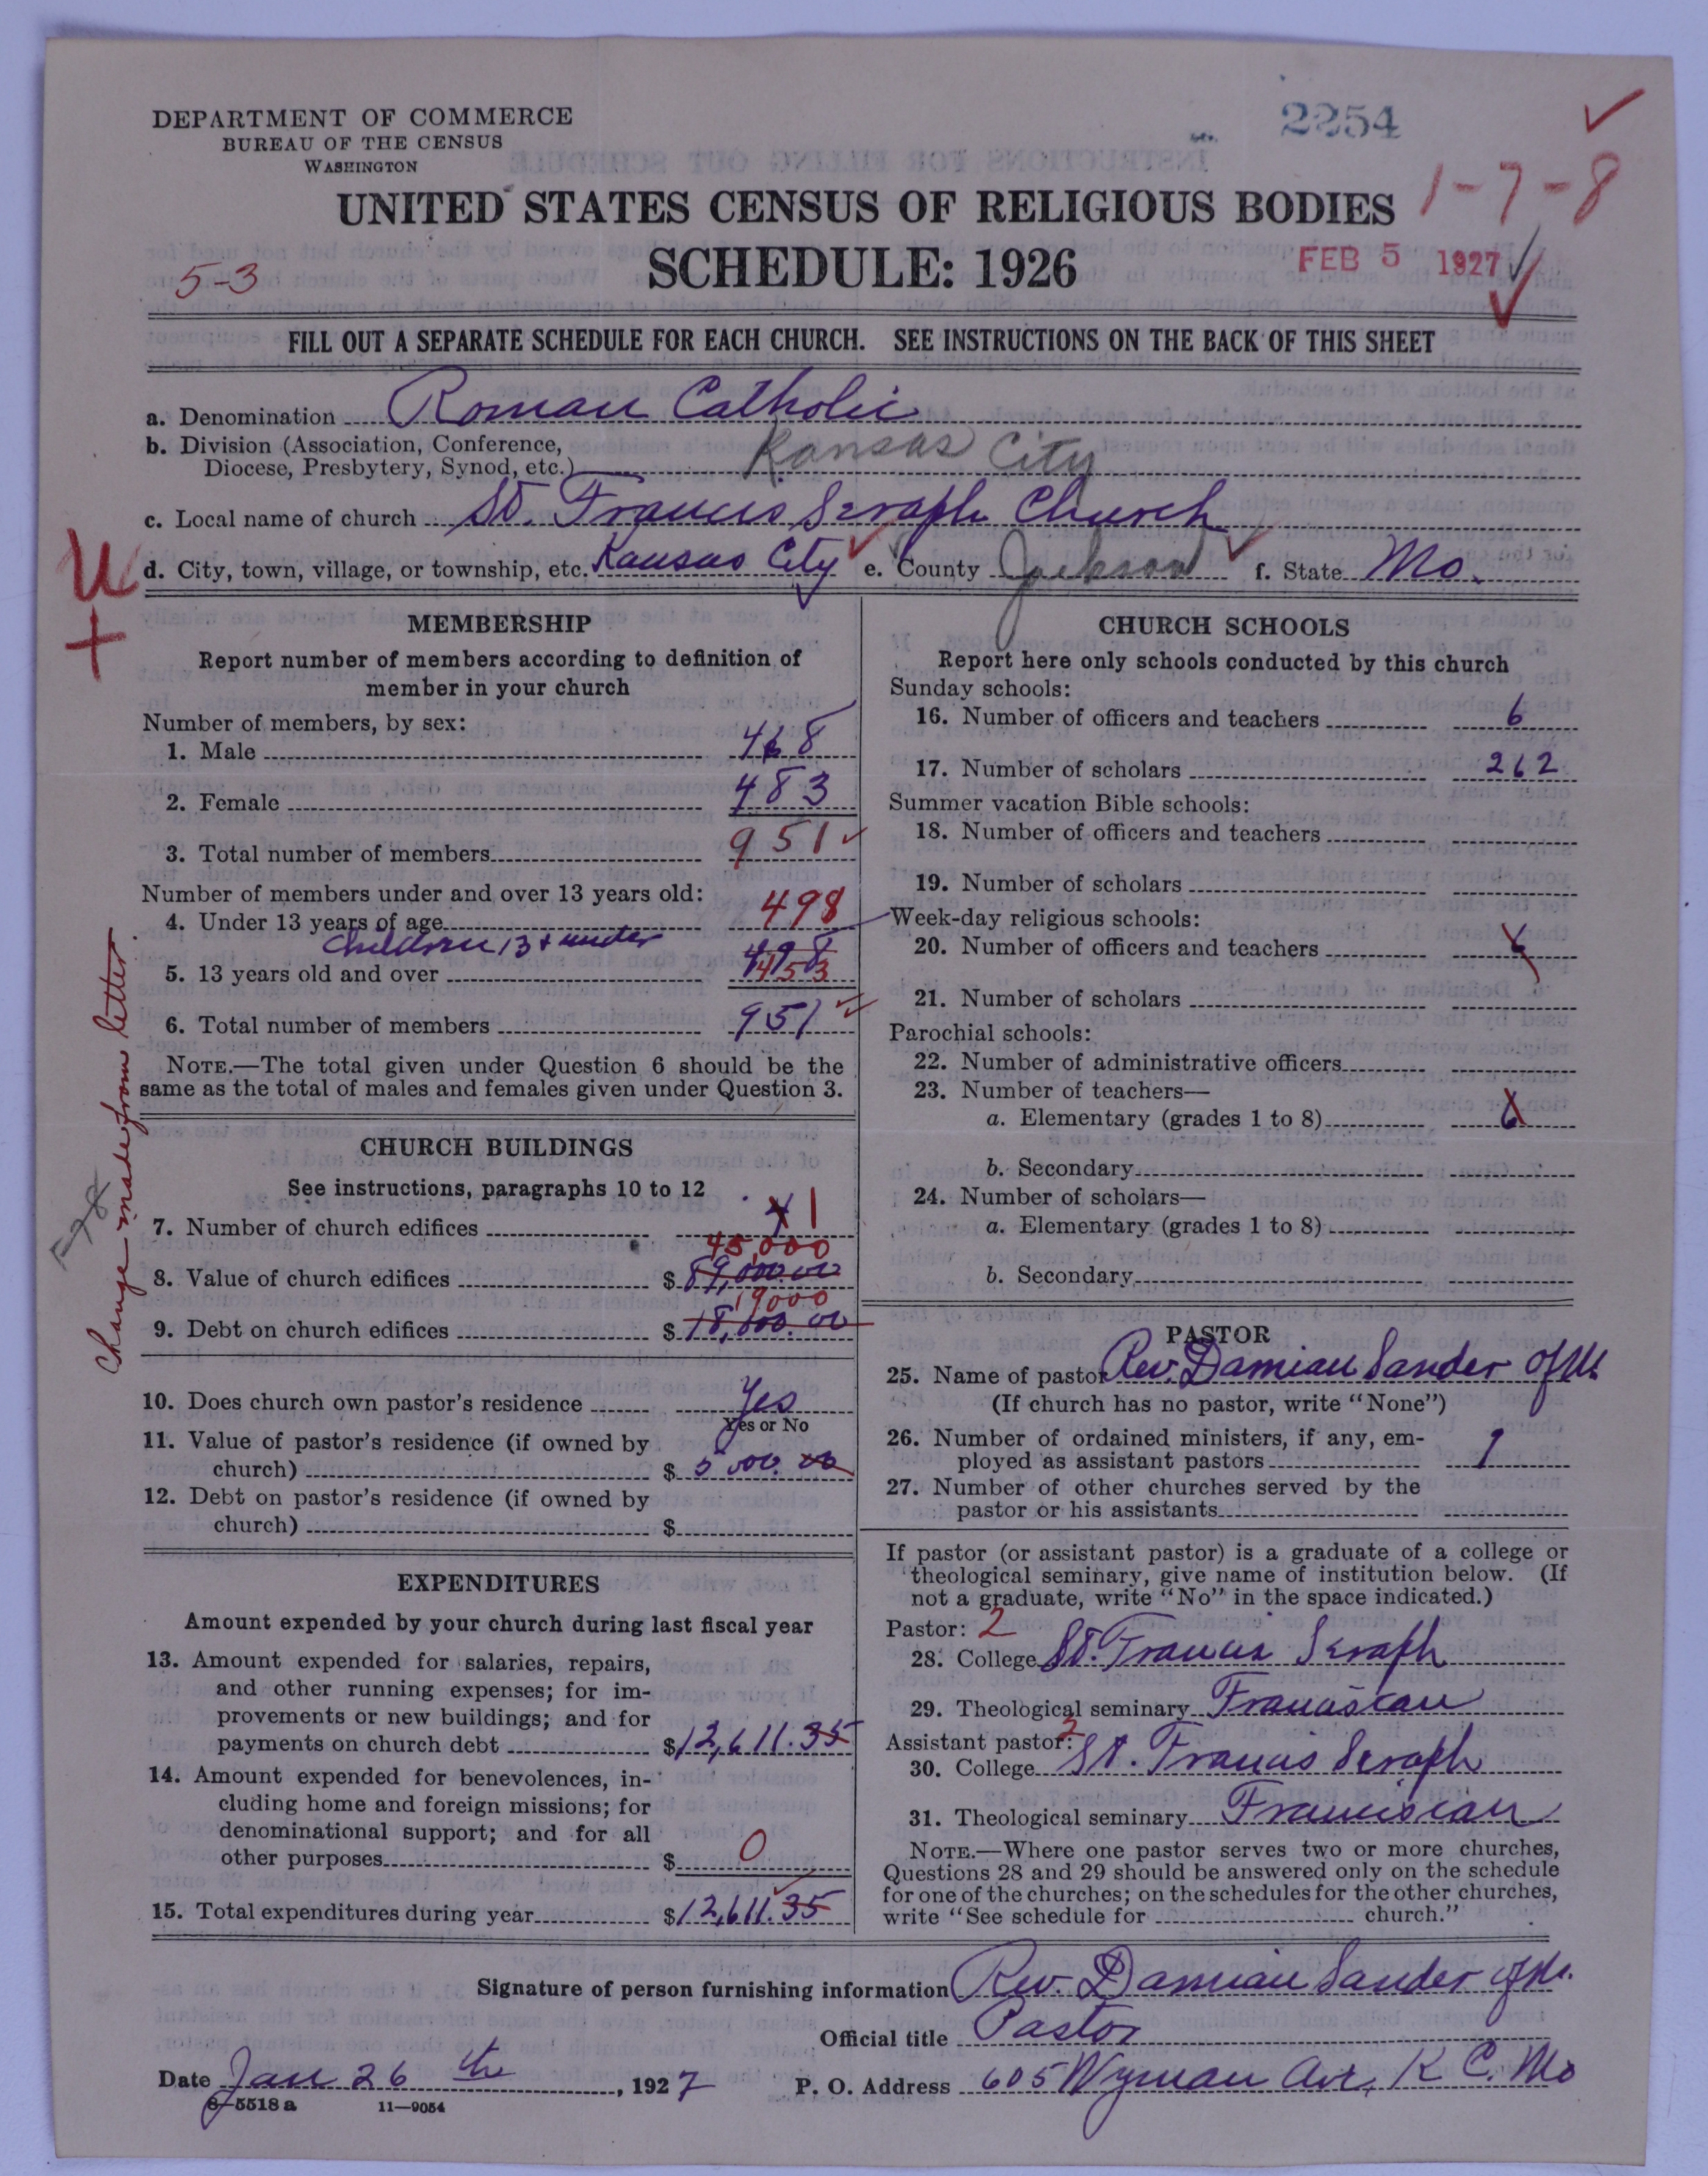 DEPARTMENT OF COMMERCE
BUREAU OF THE CENSUS
WASHINGTON
2254
UNITED STATES CENSUS OF RELIGIOUS BODIES
1-7-8
SCHEDULE: 1926
5-3
FEB 5 1927
FILL OUT A SEPARATE SCHEDULE FOR EACH CHURCH. SEE INSTRUCTIONS ON THE BACK OF THIS SHEET
a. Denomination Roman Catholic
b. Division (Association, Conference,
Diocese, Presbytery, Synod, etc.) Kansas City
c. Local name of church St. Francis Seraph Church
d. City, town, village, or township, etc. Kansas City e. County Jackson f. State Mo.
U
+
MEMBERSHIP
Report number of members according to definition of
member in your church
Number of members, by sex:
1. Male 468
2. Female 483
3. Total number of members 951
Number of members under and over 13 years old:
4. Under 13 years of age 498
Children 13 & under
5. 13 years old and over 498 453
6. Total number of members 951
NOTE.—The total given under Question 6 should be the
same as the total of males and females given under Question 3.
Change made from letter
CHURCH BUILDINGS
See instructions, paragraphs 10 to 12
7. Number of church edifices 1
45,000
8. Value of church edifices $ 89,000.00
19000
9. Debt on church edifices $ 18,000.00
10. Does church own pastor's residence Yes
Yes or No
11. Value of pastor's residence (if owned by
church) $ 5000.00
12. Debt on pastor's residence (if owned by
church) $
EXPENDITURES
Amount expended by your church during last fiscal year
13. Amount expended for salaries, repairs,
and other running expenses; for im-
provements or new buildings; and for
payments on church debt $12,611.35
14. Amount expended for benevolences, in-
cluding home and foreign missions; for
denominational support; and for all
other purposes $ 0
15. Total expenditures during year $12,611.35
CHURCH SCHOOLS
Report here only schools conducted by this church
Sunday schools:
16. Number of officers and teachers 6
17. Number of scholars 262
Summer vacation Bible schools:
18. Number of officers and teachers
19. Number of scholars
Week-day religious schools:
20. Number of officers and teachers 6
21. Number of scholars
Parochial schools:
22. Number of administrative officers
23. Number of teachers—
a. Elementary (grades 1 to 8) 6
b. Secondary
24. Number of scholars—
a. Elementary (grades 1 to 8)
b. Secondary
PASTOR
25. Name of pastor Rev. Damian Sander OFM
(If church has no pastor, write "None")
26. Number of ordained ministers, if any, em-
ployed as assistant pastors 1
27. Number of other churches served by the
pastor or his assistants
If pastor (or assistant pastor) is a graduate of a college or
theological seminary, give name of institution below. (If
not a graduate, write "No" in the space indicated.)
Pastor: 2
28. College St. Francis Seraph
29. Theological seminary Franciscan
Assistant pastor: 2
30. College St. Francis Seraph
31. Theological seminary Franciscan
NOTE.—Where one pastor serves two or more churches,
Questions 28 and 29 should be answered only on the schedule
for one of the churches; on the schedules for the other churches,
write "See schedule for church."
Signature of person furnishing information Rev. Damian Sander ofm.
Official title Pastor
Date Jan 26 th, 1927 P. O. Address 605 Wyman Ave, K C. Mo
8—5518 a 11—9054